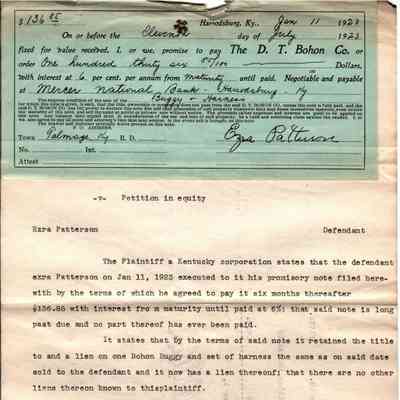 $136 85 Harrodsburg, Ky., Jan 11 1923
On or before the Eleventh day of July 1923
fixed for value received, I, or we, promise to pay The D. T. Bohon Co. or
order One hundred thirty six 85/100 Dollars,
with interest at 6 per cent. per annum from maturity until paid. Negotiable and payable
at Mercer National Bank - Harrodsburg, Ky
The express condition of the sale of the Buggy & Harness
P. O. ADDRESS,
Town Talmage Ky R. D. Ezra Patterson
No. Int.
Attest
-v- Petition in equity
Ezra Patterson Defendant
The Plaintiff a Kentucky corporation states that the defendant
ezra Patterson on Jan 11, 1923 executed to it his promisory note filed here-
with by the terms of which he agreed to pay it six months thereafter
$136.85 with interest fro m maturity until paid at 6%; that said note is long
past due and no part thereof has ever been paid.
It states that by the terms of said note it retained the title
to and a lien on one Bohon Buggy and set of harness the same as on said date
sold to the defendant and it now has a lien thereonf; that there are no other
liens thereon known to thisplaintiff.